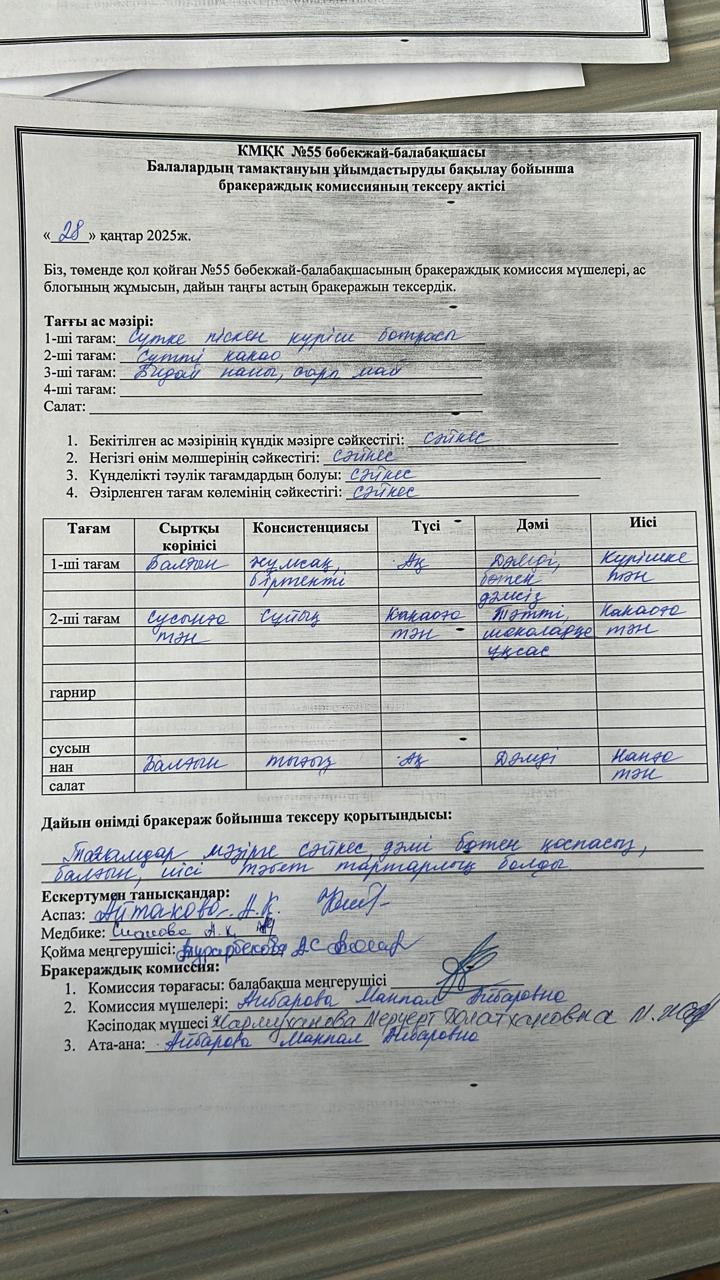 КМҚК №55 бөбекжай-балабақшасы
Балалардың тамақтануын ұйымдастыруды бақылау бойынша
бракераждық комиссияның тексеру актісі
« 28 » қаңтар 2025ж.
Біз, төменде қол қойған №55 бөбекжай-балабақшасының бракераждық комиссия мүшелері, ас
блогының жұмысын, дайын таңғы астың бракеражын тексердік.
Таңғы ас мәзірі:
1-ші тағам: Сүтке піскен күріш ботқасы
2-ші тағам: Сүтті какао
3-ші тағам: Бидай наны, сары май
4-ші тағам:
Салат:
1. Бекітілген ас мәзірінің күндік мәзірге сәйкестігі: сәйкес
2. Негізгі өнім мөлшерінің сәйкестігі: сәйкес
3. Күнделікті тәулік тағамдардың болуы: сәйкес
4. Әзірленген тағам көлемінің сәйкестігі: сәйкес
Тағам Сыртқы көрінісі Консистенциясы Түсі Дәмі Иісі
1-ші тағам Балғын жұмсақ, біртекті Ақ Дәмді, бөтен дәмсіз Күрішке тән
2-ші тағам Сусынға тән Сұйық Какаоға тән Тәтті, шоколадқа ұқсас Какаоға тән
гарнир
сусын
нан Балғын тығыз Ақ Дәмді Нанға тән
салат
Дайын өнімді бракераж бойынша тексеру қорытындысы:
Тағамдар мәзірге сәйкес, дәмі бөтен қоспасыз,
балғын, иісі тәбет тартарлық болды
Ескертумен танысқандар:
Аспаз: Айтакова А.Қ.
Медбике: А.Қ.
Қойма меңгерушісі: АС
Бракераждық комиссия:
1. Комиссия төрағасы: балабақша меңгерушісі
2. Комиссия мүшелері: Айбарова Макпал Айбаровна
Кәсіподақ мүшесі Жармуханова Меруерт Болатхановна
3. Ата-ана: Айбарова Макпал Айбаровна